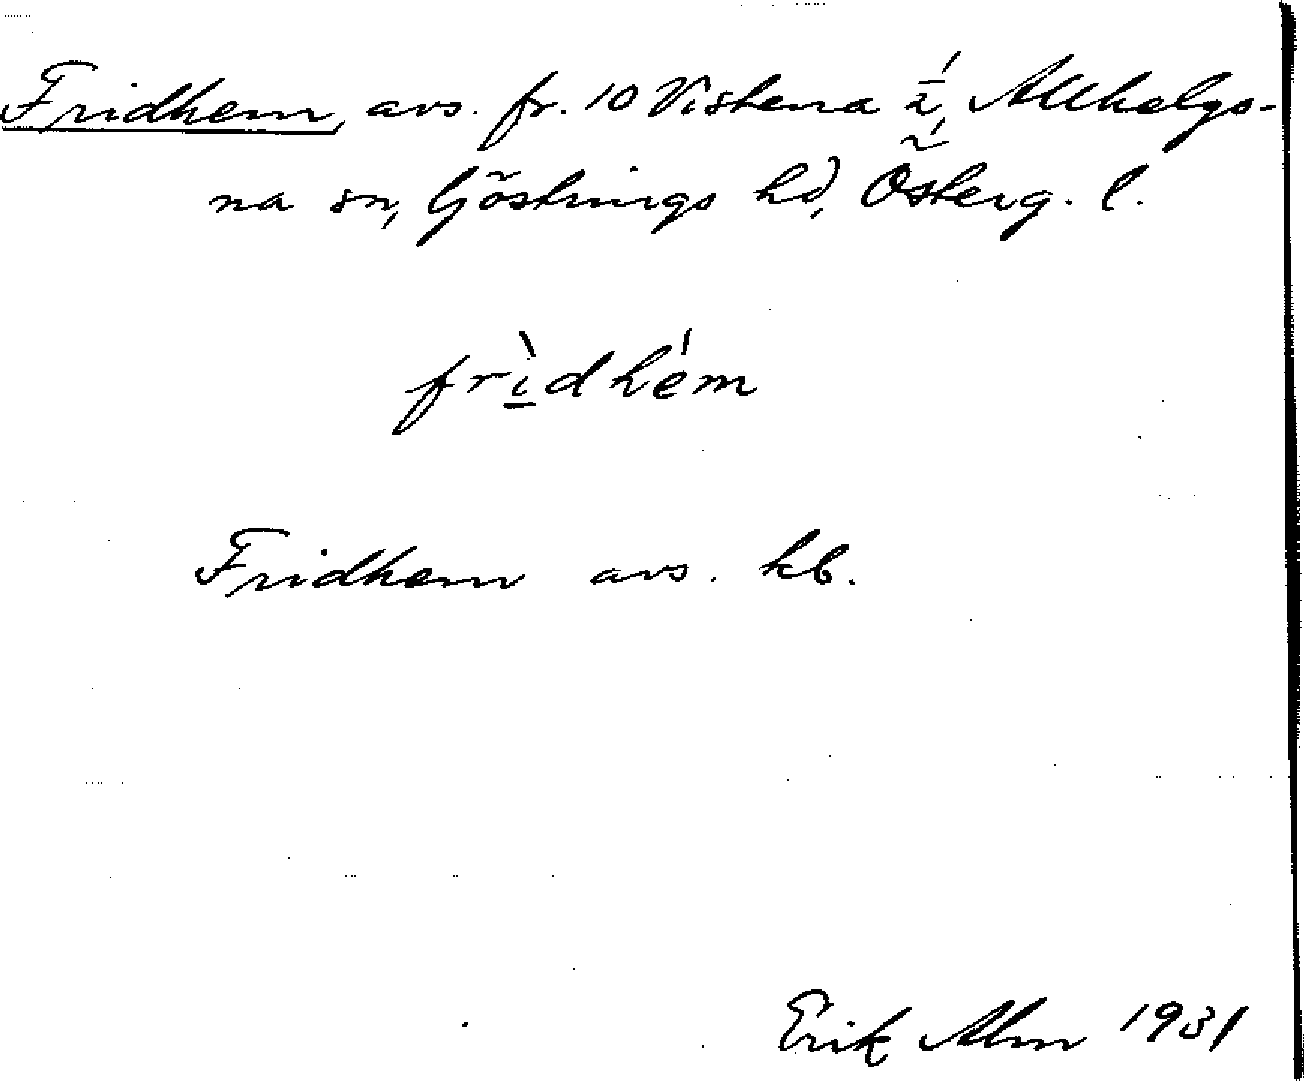 Fridhem, avs. fr. 10 Vistena 1/2, Allhelgo-
na sn, Göstrings hd, Österg. l.
frì̲dhém
Fridhem avs. kb.
Erik Alm 1931